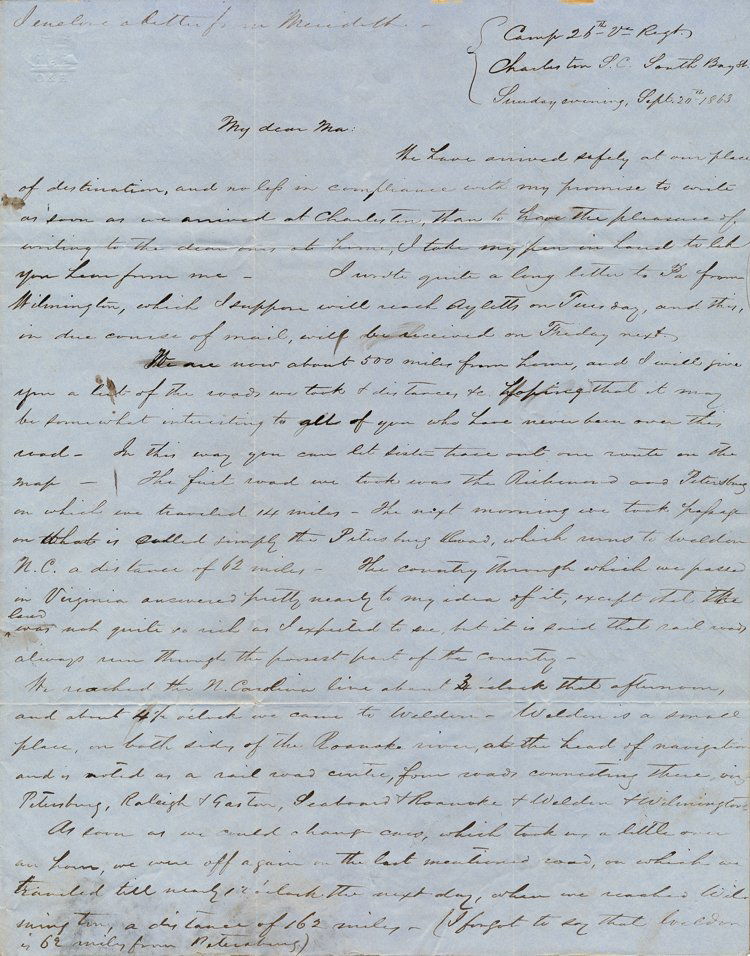 I enclose a letter from Meredith. –
Camp 26th Va Regt
Charleston S.C. South Bay St.
Sunday evening, Sept. 20th 1863
My dear Ma:
We have arrived safely at our place
of destination, and no less in compliance with my promise to write
as soon as we arrived at Charleston, than to have the pleasure of
writing to the dear ones at home, I take my pen in hand to let
you hear from me – I wrote quite a long letter to Pa from
Wilmington, which I suppose will reach Ayletts on Tuesday, and this,
in due course of mail, will be received on Friday next.
We are now about 500 miles from home, and I will give
you a list of the roads we took & distances &c. hoping that it may
be somewhat interesting to all of you who have never been over this
road – In this way you can let sister trace out our route on the
map – The first road we took was the Richmond and Petersburg
on which we traveled 14 miles – The next morning we took passage
on what is called simply the Petersburg Road, which runs to Weldon
N.C. a distance of 62 miles – The country through which we passed
in Virginia answered pretty nearly to my idea of it, except that the
land
was not quite so rich as I expected to see, but it is said that rail roads
always run through the poorest part of the country –
We reached the N. Carolina line about 3 o'clock that afternoon,
and about 4 o'clock we came to Weldon – Weldon is a small
place, on both sides of the Roanoke river, at the head of navigation
and is noted as a rail road centre, four roads connecting there, viz
Petersburg, Raleigh & Gaston, Seaboard & Roanoke & Weldon & Wilmington
As soon as we could change cars, which took us a little over
an hour, we were off again on the last mentioned road, on which we
traveled till nearly 12 o'clock the next day, when we reached Wil-
mington, a distance of 162 miles – (I forgot to say that Weldon
is 62 miles from Petersburg)